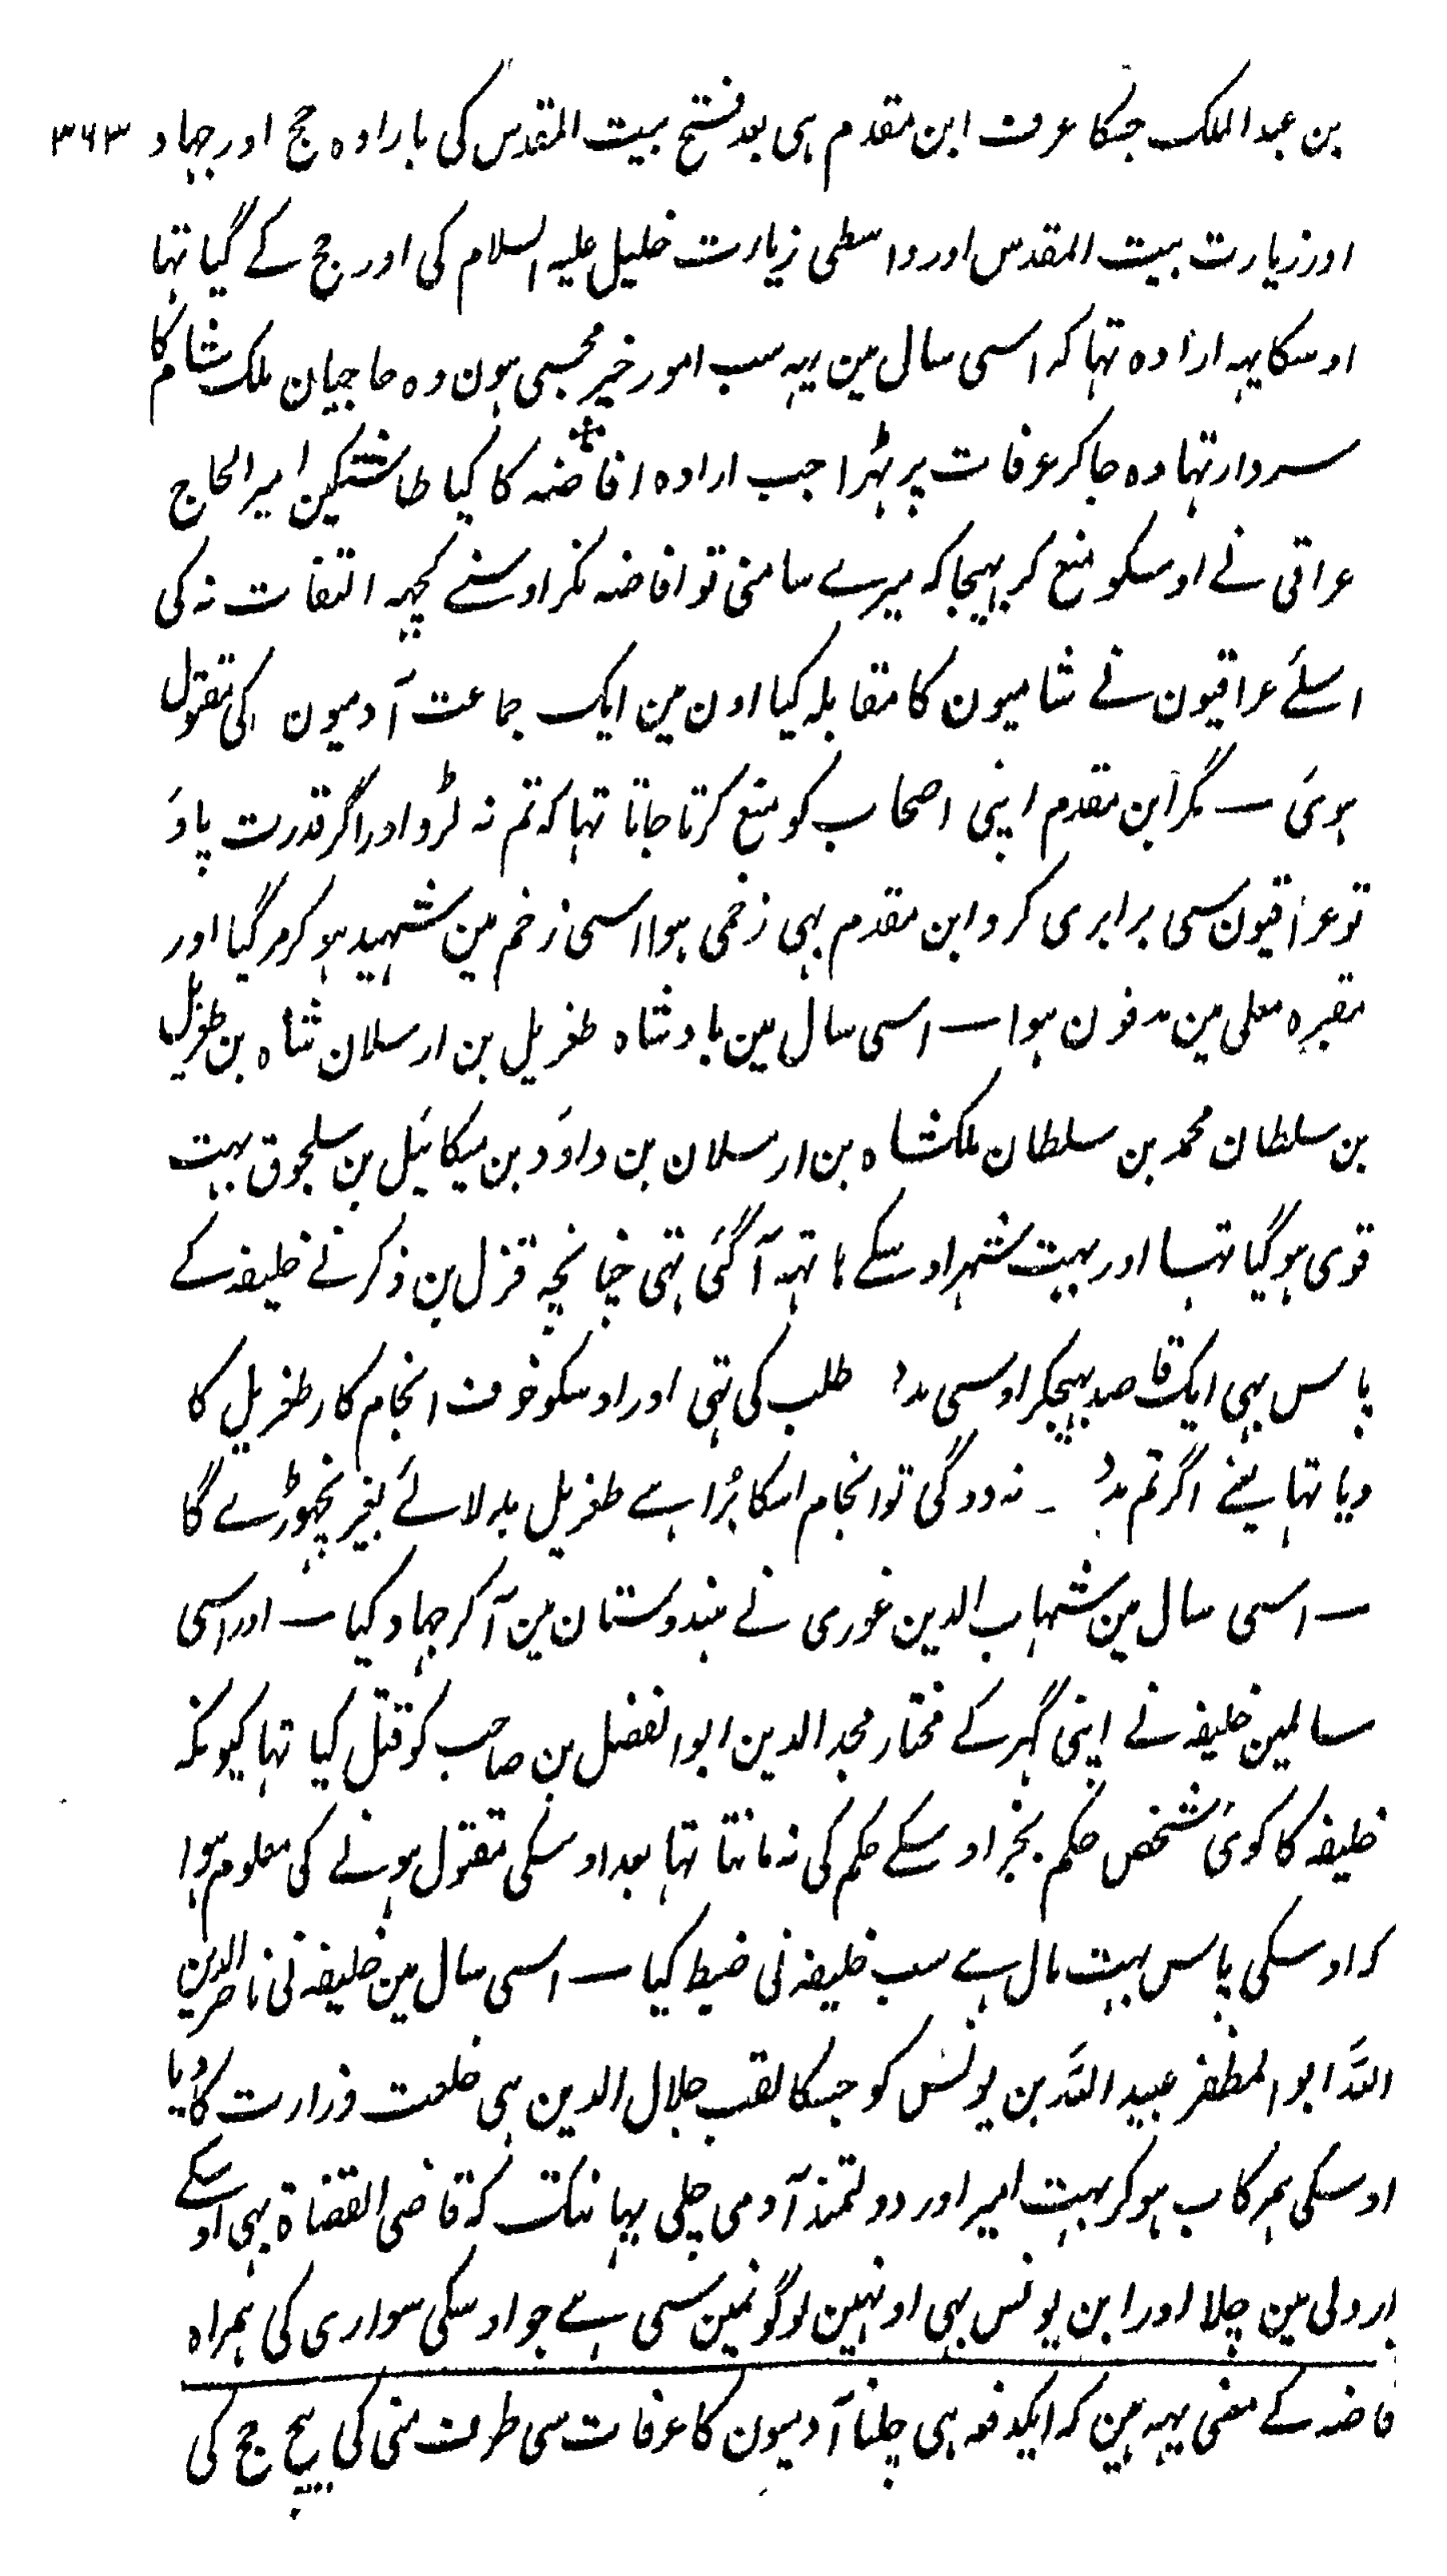 بن عبد الملک جسکا عرف ابن مقدم ہی بعد فتح بیت المقدس کی بارادہ حج اور جہاد ۳۶۳
اور زیارت بیت المقدس اور واسطی زیارت خلیل علیہ السلام کی اور حج کے گیا تہا
اوسکا یہہ ارادہ تہا کہ اسی سال مین یہہ سب امور خیر مجسی ہون وہ حاجیان ملک شام کا
سردار تہا وہ جا کر عرفات پر ٹہرا جب ارادہ افاضہ کا کیا طاشتکین امیر الحاج
عراقی نے اوسکو منع کر بہیجا کہ میرے سامنی تو افاضہ نکر اوسنے کچہہ التفات نہ کی
اسلئے عراقیون نے شامیون کا مقابلہ کیا اون مین ایک جماعت آدمیون کی مقتول
ہوئی — مگر ابن مقدم اپنی اصحاب کو منع کرتا جاتا تہا کہ تم نہ لڑو اور اگر قدرت پاؤ
تو عراقیون سی برابری کرو ابن مقدم بہی زخمی ہوا اسی زخم مین شہید ہو کر مر گیا اور
مقبرہ معلی مین مدفون ہوا — اسی سال مین بادشاہ طغریل بن ارسلان شاہ بن طغریل
بن سلطان محمد بن سلطان ملکشاہ بن ارسلان بن داوَد بن میکائیل بن سلجوق بہت
قوی ہو گیا تہا اور بہت شہر اوسکے ہاتہہ آ گئی تہی چنانچہ قزل بن ذکر نے خلیفہ کے
پاس بہی ایک قاصد بہیجکر اوسی مدد طلب کی تہی اور اوسکو خوف انجام کار طغریل کا
دیا تہا یعنے اگر تم مدد نہ دو گی تو انجام اسکا بُرا ہے طغریل بدلا لئے بغیر نچہوڑے گا
— اسی سال مین شہاب الدین غوری نے ہندوستان مین آ کر جہاد کیا — اور اسی
سالمین خلیفہ نے اپنی گہر کے مختار مجد الدین ابو الفضل بن صاحب کو قتل کیا تہا کیونکہ
خلیفہ کا کوئی شخص حکم بجز اوسکے حکم کی نہ مانتا تہا بعد اوسکی مقتول ہونے کی معلوم ہوا
کہ اوسکی پاس بہت مال ہے سب خلیفہ نی ضبط کیا — اسی سال مین خلیفہ نی ناصر الدین
اللہ ابو المظفر عبید اللہ بن یونس کو جسکا لقب جلال الدین ہی خلعت وزارت کا دیا
اوسکی ہمرکاب ہو کر بہت امیر اور دولتمند آدمی چلی یہانتک کہ قاضی القضاۃ بہی اوسکے
اردلی مین چلا اور ابن یونس بہی اونہین لوگونمین سی ہے جو اوسکی سواری کی ہمراہ
فاضہ کے معنی یہہ ہین کہ ایکدفعہ ہی چلنا آدمیون کا عرفات سی طرف منی کی بیچ حج کی